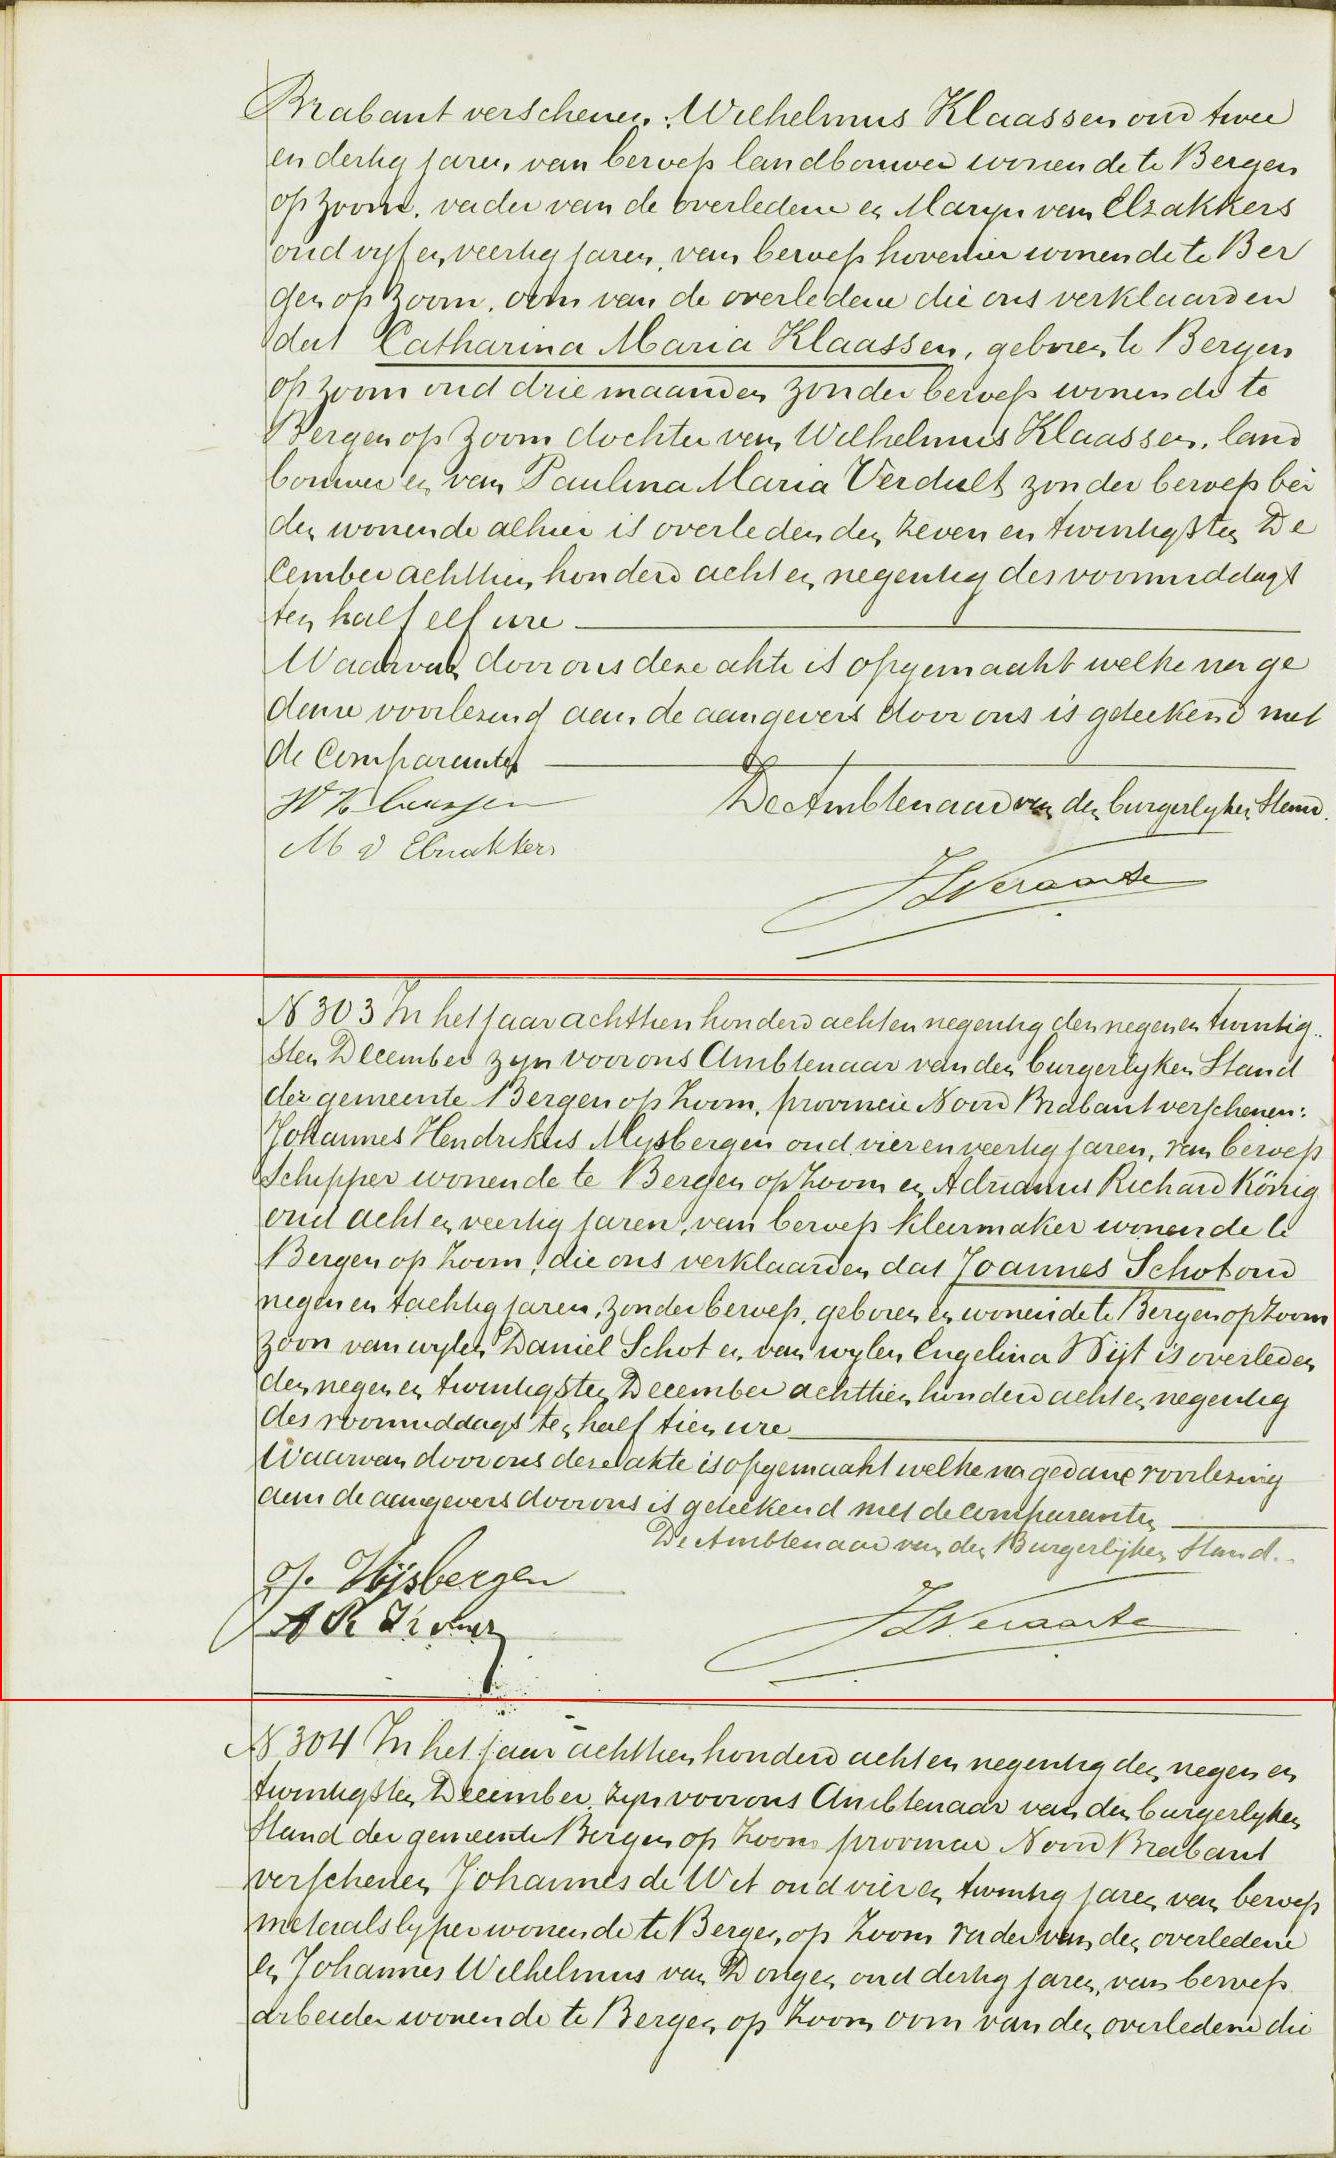 Brabant verschenen: Wilhelmus Klaassen oud twee
en dertig jaren, van beroep landbouwer wonende te Bergen
op Zoom, vader van de overledene en Maryn van Elzakkers
oud vyf en veertig jaren, van beroep hovenier wonende te Ber
gen op Zoom, oom van de overledene die ons verklaarden
dat Catharina Maria Klaassen, geboren te Bergen
op Zoom oud drie maanden zonder beroep wonende te
Bergen op Zoom dochter van Wilhelmus Klaassen, land
bouwer en van Paulina Maria Verdult zonder beroep bei
den wonende alhier is overleden den zeven en twintigsten De
cember achttien honderd acht en negentig des voormiddags
ten half elf ure
Waarvan door ons deze akte is opgemaakt welke na ge
dane voorlezing aan de aangevers door ons is geteekend met
de Comparanten
W Klaassen
De Ambtenaar van den burgerlyken Stand.
M v Elzakkers
N 303 In het jaar achttien honderd acht en negentig den negen en twintig
sten December zyn voor ons Ambtenaar van den burgerlyken Stand
der gemeente Bergen op Zoom, provincie Noord Brabant verschenen:
Johannes Hendrikus Mysbergen oud vier en veertig jaren, van beroep
Schipper wonende te Bergen op Zoom en Adrianus Richard König
oud acht en veertig jaren, van beroep kleermaker wonende te
Bergen op Zoom, die ons verklaarden dat Joannes Schot oud
negen en tachtig jaren, zonder beroep, geboren en wonende te Bergen op Zoom
zoon van wylen Daniel Schot en van wylen Engelina Wijt is overleden
den negen en twintigsten December achttien honderd acht en negentig
des voormiddags ten half tien ure
Waarvan door ons deze akte is opgemaakt welke na gedane voorlezing
aan de aangevers door ons is geteekend met de comparanten
De Ambtenaar van den Burgerlijken Stand.
N 304 In het jaar achttien honderd acht en negentig den negen en
twintigsten December, zyn voor ons Ambtenaar van den burgerlyken
Stand der gemeente Bergen op Zoom provincie Noord Brabant
verschenen Johannes de Wit oud vier en twintig jaren van beroep
metaalslyper wonende te Bergen op Zoom vader van den overledene
en Johannes Wilhelmus van Dongen oud dertig jaren, van beroep
arbeider wonende te Bergen op Zoom oom van den overledene die